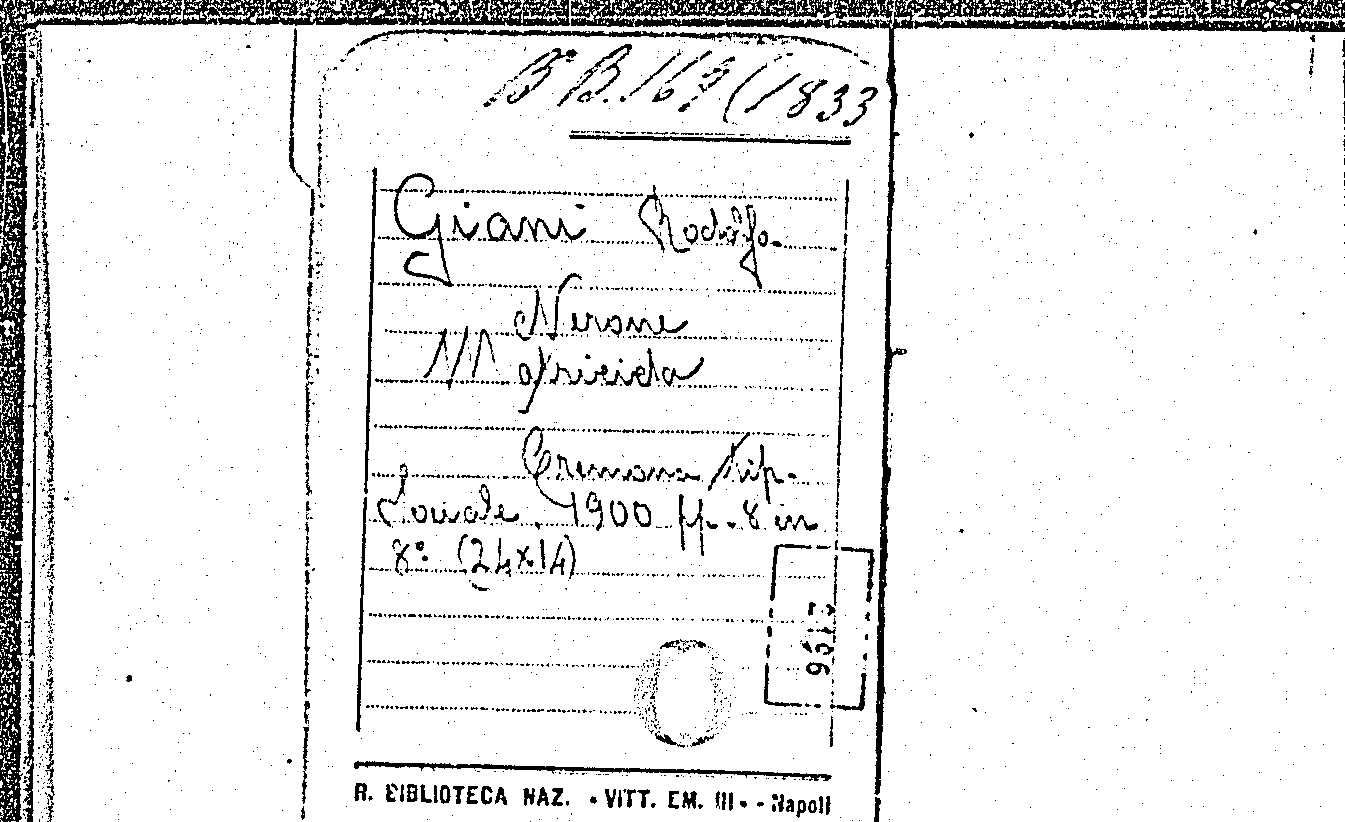 Bª B. 169 (1833
Giani Rodolfo.
Nerone
Matricida
Cremona tip.
Sociale. 1900 pp. 8 in
8° (24x14)
R. BIBLIOTECA NAZ. - VITT. EM. III - - Napoli